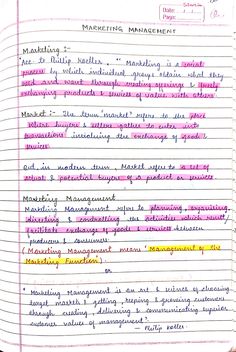 MARKETING MANAGEMENT
Marketing :-
Acc to Phillip Kotler, "Marketing is a social
process by which individual groups obtain what they
need and want through creating offerings & freely
exchanging products and services of value with others
Market :- The term 'market' refers to the place
where buyers & sellers gather to enter into
transactions involving the exchange of goods &
services
in modern term, Market refers to a set of
actual & potential buyers of a product or services
Marketing Management
Marketing Management refers to planning, organising,
directing & controlling the activities which result
facilitate exchange of goods & services between
producers & consumers.
(Marketing Management means "Management of the
Marketing Function)
or
"Marketing Management is an art & science of choosing
target markets & getting, keeping & growing customers
through creating, delivering & communicating superior
customer values of management"
- Philip Kotler.